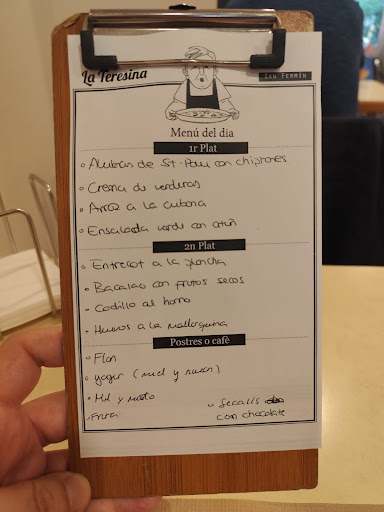 La Teresina
San Fermín
Menú del dia
1r Plat
Alubias de St. Pau con chipirones
Crema de verduras
Arroz a la cubana
Ensalada verde con atún
2n Plat
Entrecot a la plancha
Bacalao con frutos secos
Codillo al horno
Huevos a la mallorquina
Postres o cafè
Flan
yogur (miel y nueces)
Mel y mató
Fruta
Secalls
con chocolate